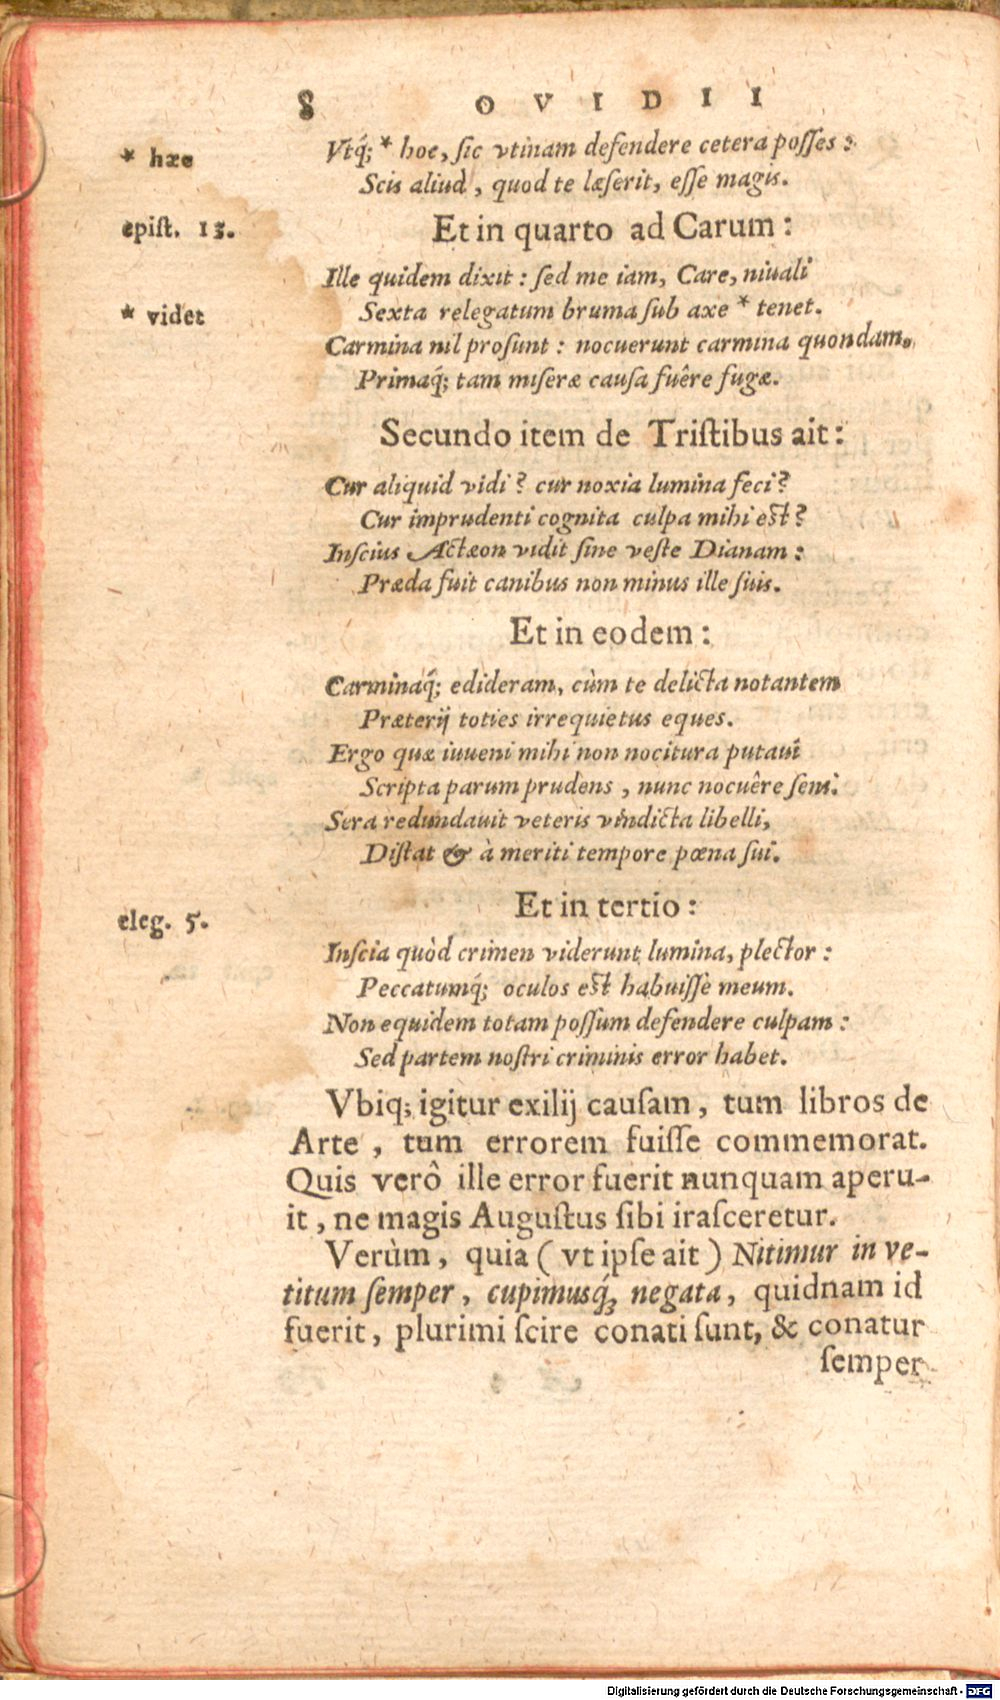 8 OVIDII
* hæc
Vtq́; * hoc, ſic vtinam defendere cetera poſſes:
Scis aliud, quod te læſerit, eſſe magis.
epiſt. 13.
Et in quarto ad Carum:
Ille quidem dixit: ſed me iam, Care, niuali
* videt
Sexta relegatum bruma ſub axe * tenet.
Carmina nil proſunt: nocuerunt carmina quondam,
Primaq́; tam miſeræ cauſa fuêre fugæ.
Secundo item de Triſtibus ait:
Cur aliquid vidi? cur noxia lumina feci?
Cur imprudenti cognita culpa mihi eſt?
Inſcius Actæon vidit ſine veſte Dianam:
Præda fuit canibus non minus ille ſuis.
Et in eodem:
Carminaq́; edideram, cùm te delicta notantem
Præterij toties irrequietus eques.
Ergo quæ iuueni mihi non nocitura putaui
Scripta parum prudens, nunc nocuêre ſeni.
Sera redundauit veteris vindicta libelli,
Diſtat & à meriti tempore pœna ſui.
eleg. 5.
Et in tertio:
Inſcia quòd crimen viderunt lumina, plector:
Peccatumq́; oculos eſt habuiſſe meum.
Non equidem totam poſſum defendere culpam:
Sed partem noſtri criminis error habet.
Vbiq; igitur exilij cauſam, tum libros de
Arte, tum errorem fuiſſe commemorat.
Quis verô ille error fuerit nunquam aperu-
it, ne magis Auguſtus ſibi iraſceretur.
Verùm, quia (vt ipſe ait) Nitimur in ve-
titum ſemper, cupimusq́; negata, quidnam id
fuerit, plurimi ſcire conati ſunt, & conatur
ſemper
Digitalisierung gefördert durch die Deutsche Forschungsgemeinschaft - DFG